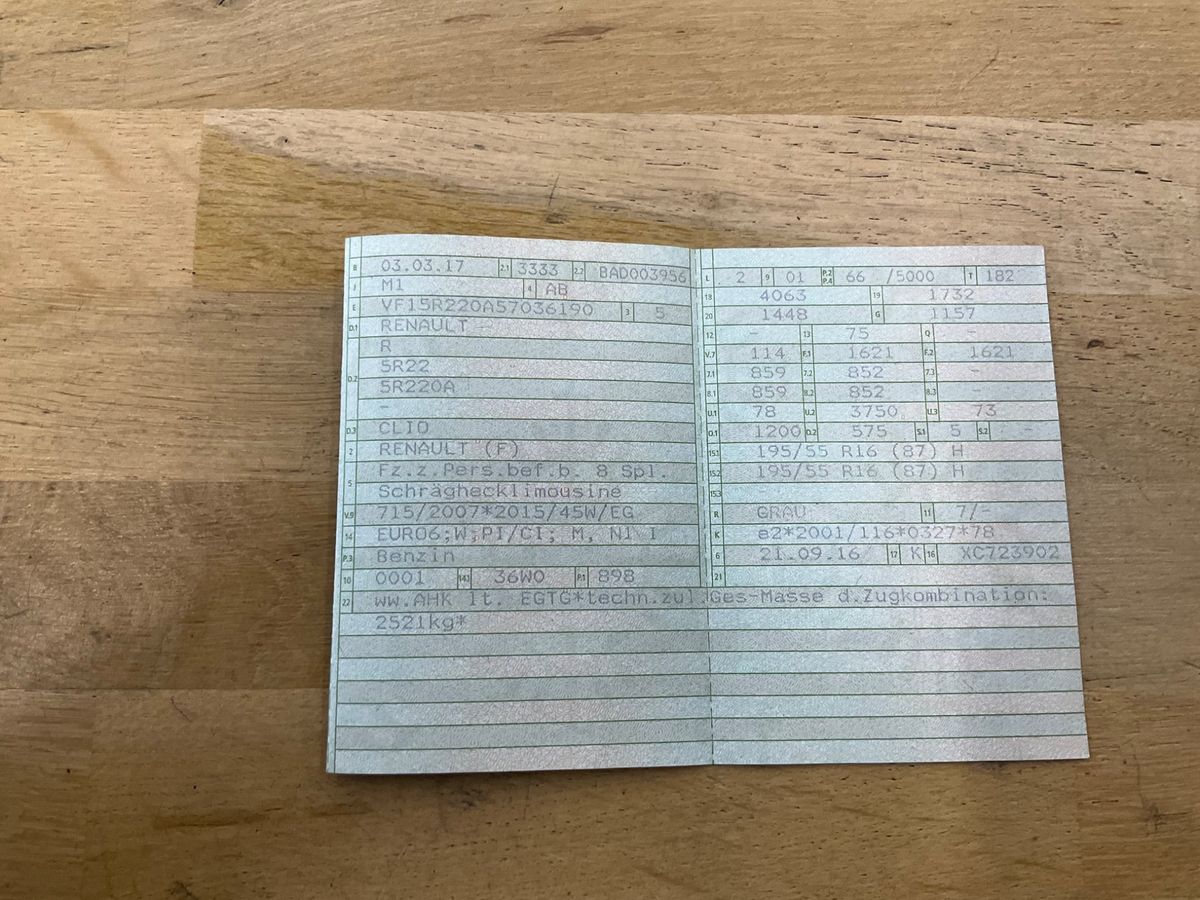 B 03.03.17 2.1 3333 2.2 BAD003956
J M1 4 AB
E VF15R220A57036190 3 5
D.1 RENAULT
R
D.2 5R22
5R220A
-
D.3 CLIO
2 RENAULT (F)
5 Fz.z.Pers.bef.b. 8 Spl.
Schräghecklimousine
V.9 715/2007*2015/45W/EG
14 EURO6;W;PI/CI; M, N1 I
P.3 Benzin
10 0001 14.1 36W0 P.1 898
L 2 9 01 P.2 P.4 66 /5000 T 182
18 4063 19 1732
20 1448 G 1157
12 - 13 75 Q -
V.7 114 F.1 1621 F.2 1621
7.1 859 7.2 852 7.3 -
8.1 859 8.2 852 8.3 -
U.1 78 U.2 3750 U.3 73
O.1 1200 O.2 575 S.1 5 S.2 -
15.1 195/55 R16 (87) H
15.2 195/55 R16 (87) H
15.3 -
R GRAU 11 7/-
K e2*2001/116*0327*78
6 21.09.16 17 K 16 XC723902
21
22 ww.AHK lt. EGTG*techn.zul.Ges-Masse d.Zugkombination:
2521kg*